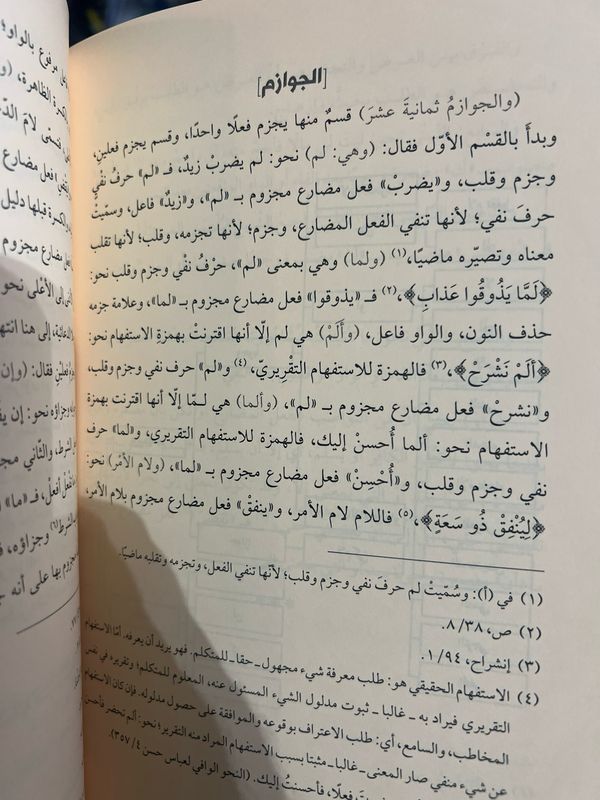 [الجوازم]
(والجوازمُ ثمانيةَ عشرَ) قسمٌ منها يجزم فعلًا واحدًا، وقسم يجزم فعلين،
وبدأَ بالقسْم الأوّل فقال: (وهي: لم) نحو: لم يضربْ زيدٌ، فـ «لم» حرفُ نفْيٍ
وجزم وقلب، و«يضربْ» فعل مضارع مجزوم بـ «لم»، و«زيدٌ» فاعل، وسمّيتْ
حرفَ نفي؛ لأنها تنفي الفعل المضارع، وجزم؛ لأنها تجزمه، وقلب؛ لأنها تقلب
معناه وتصيّره ماضيًا،(١) (ولما) وهي بمعنى «لم»، حرْفُ نفْي وجزم وقلب نحو:
﴿لَمَّا يَذُوقُوا عَذَابِ﴾،(٢) فـ «يذوقوا» فعل مضارع مجزوم بـ «لما»، وعلامة جزمه
حذف النون، والواو فاعل، (وألَمْ) هي لم إلّا أنها اقترنتْ بهمزةِ الاستفهام نحو:
﴿أَلَمْ نَشْرَحْ﴾،(٣) فالهمزة للاستفهام التقْرِيريّ،(٤) و«لم» حرف نفي وجزم وقلب،
و«نشرحْ» فعل مضارع مجزوم بـ «لم»، (وألما) هي لـمّا إلّا أنها اقترنت بهمزة
الاستفهام نحو: ألما أُحسنْ إليك، فالهمزة للاستفهام التقريري، و«لما» حرف
نفي وجزم وقلب، و«أُحْسِنْ» فعل مضارع مجزوم بـ «لما»، (ولام الأمْر) نحو:
﴿لِيُنْفِقْ ذُو سَعَةٍ﴾،(٥) فاللام لام الأمر، و«ينفقْ» فعل مضارع مجزوم بلام الأمر،
(١) في (أ): وسُمّيتْ لم حرفَ نفي وجزم وقلب؛ لأنّها تنفي الفعل، وتجزمه وتقلبه ماضيًا.
(٢) ص، ٨/٣٨.
(٣) إنشراح، ١/٩٤.
(٤) الاستفهام الحقيقي هو: طلب معرفة شيء مجهول ـ حقا ـ للمتكلم. فهو يريد أن يعرفه. أمّا الاستفهام
التقريري فيراد به ـ غالبا ـ ثبوت مدلول الشيء المسئول عنه، المعلوم للمتكلم؛ وتقريره في نفس
المخاطب، والسامع، أي: طلب الاعتراف بوقوعه والموافقة على حصول مدلوله. فإن كان الاستفهام
عن شيء منفي صار المعنى ـ غالبا ـ مثبتا بسبب الاستفهام المراد منه التقرير؛ نحو: ألم تحضر فأحسن
فعلًا، فأحسنتُ إليك. (النحو الوافي لعباس حسن ٣٥٧/٤).
مرفوع بالواو؛
الكسرة الظاهرة،
فعل مضارع
قبلها دليل
مضارع مجزوم
إلى الأعْلى نحو
إلى هنا انتها
فقال: (وإن
وجزاؤه نحو: إن
الشرط، والثّاني
أفعلْ، فـ «ما»
وجزاؤه،
بها على أنه